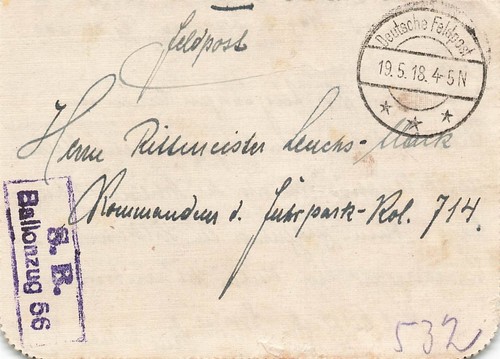 Feldpost
Deutsche Feldpost
19.5.18.4-5N
Herrn Rittmeister Leuchs-Mack
Kommandeur d. Fuhrpark-Kol. 714.
S. B.
Ballonzug 56
532